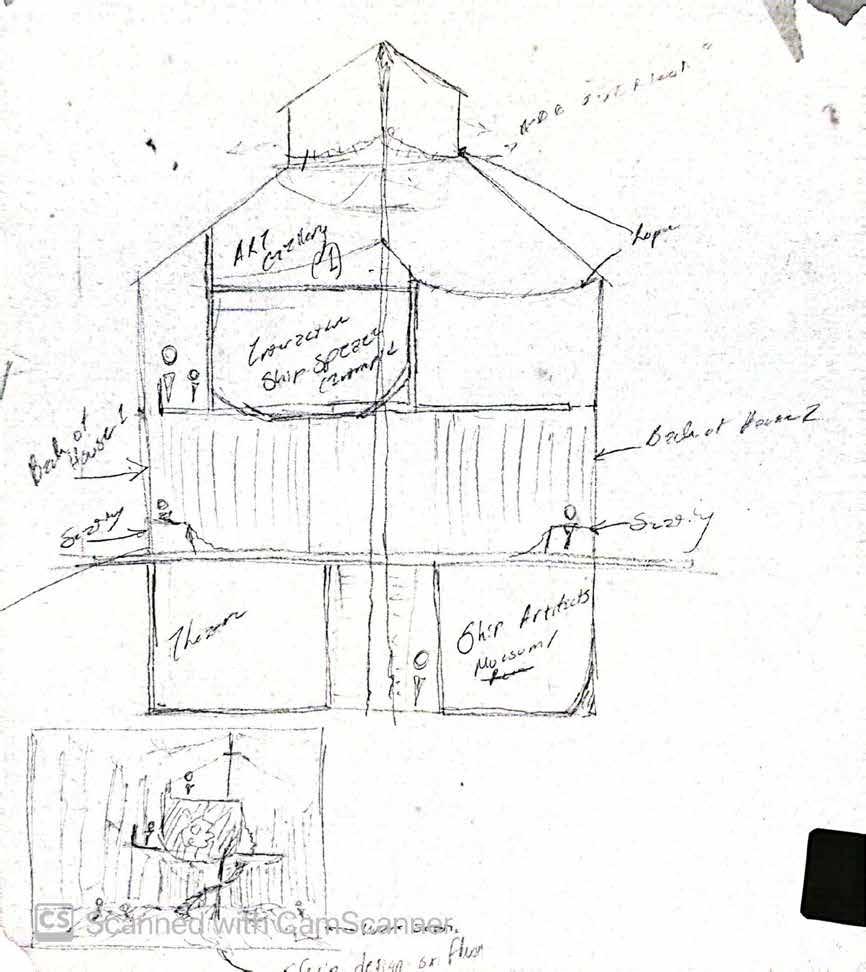 ART
Gallery
(1)
Rope
Interactive
Ship Space
Example
Back of
House 1
Back of House 2
Security
Security
Theatre
Ship Artifacts
Museum/
CS Scanned with CamScanner
Ship design on floor